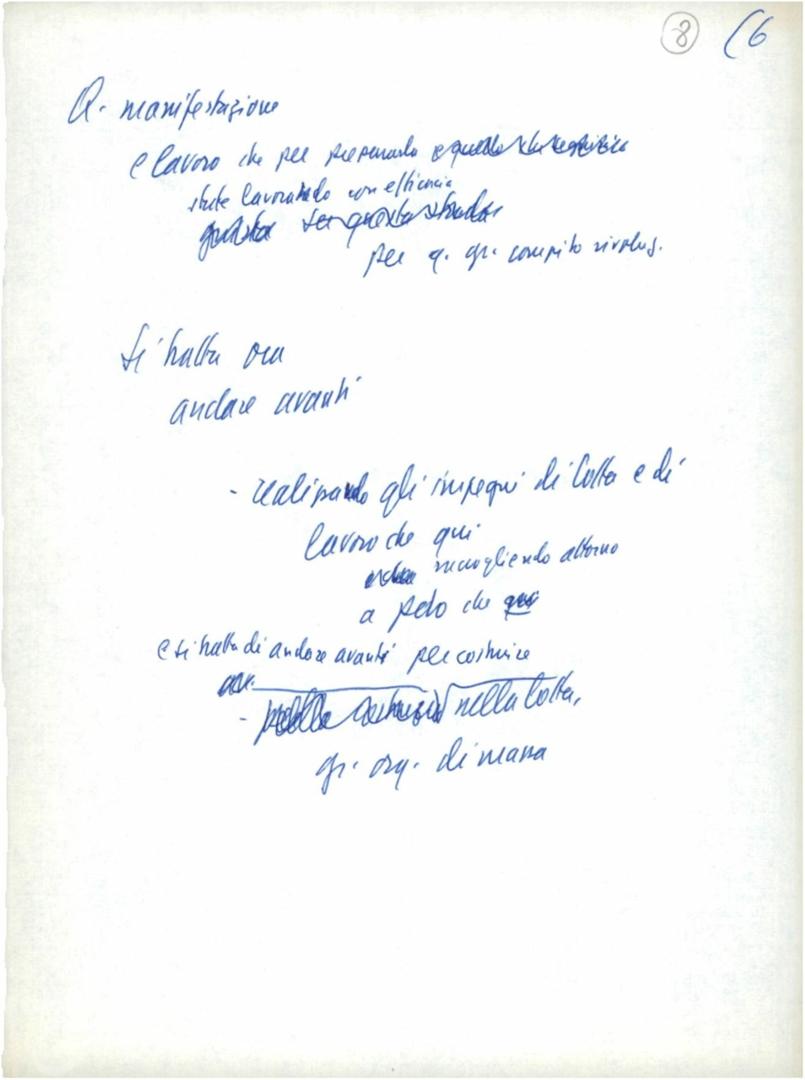 8 (6
Q. manifestazione
e lavoro che per prepararla
state lavorando con efficacia
per q. gr. compito rivoluz.
si tratta ora
andare avanti
- realizzando gli impegni di lotta e di
lavoro che qui
raccogliendo attorno
a peto che
e si tratta di andare avanti per costruire
- nella lotta,
gr. org. di massa